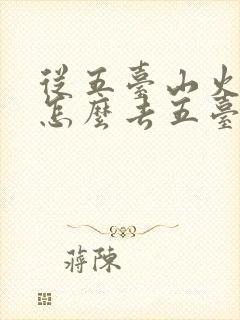 從五臺山火
怎麼去五臺
蔣陳